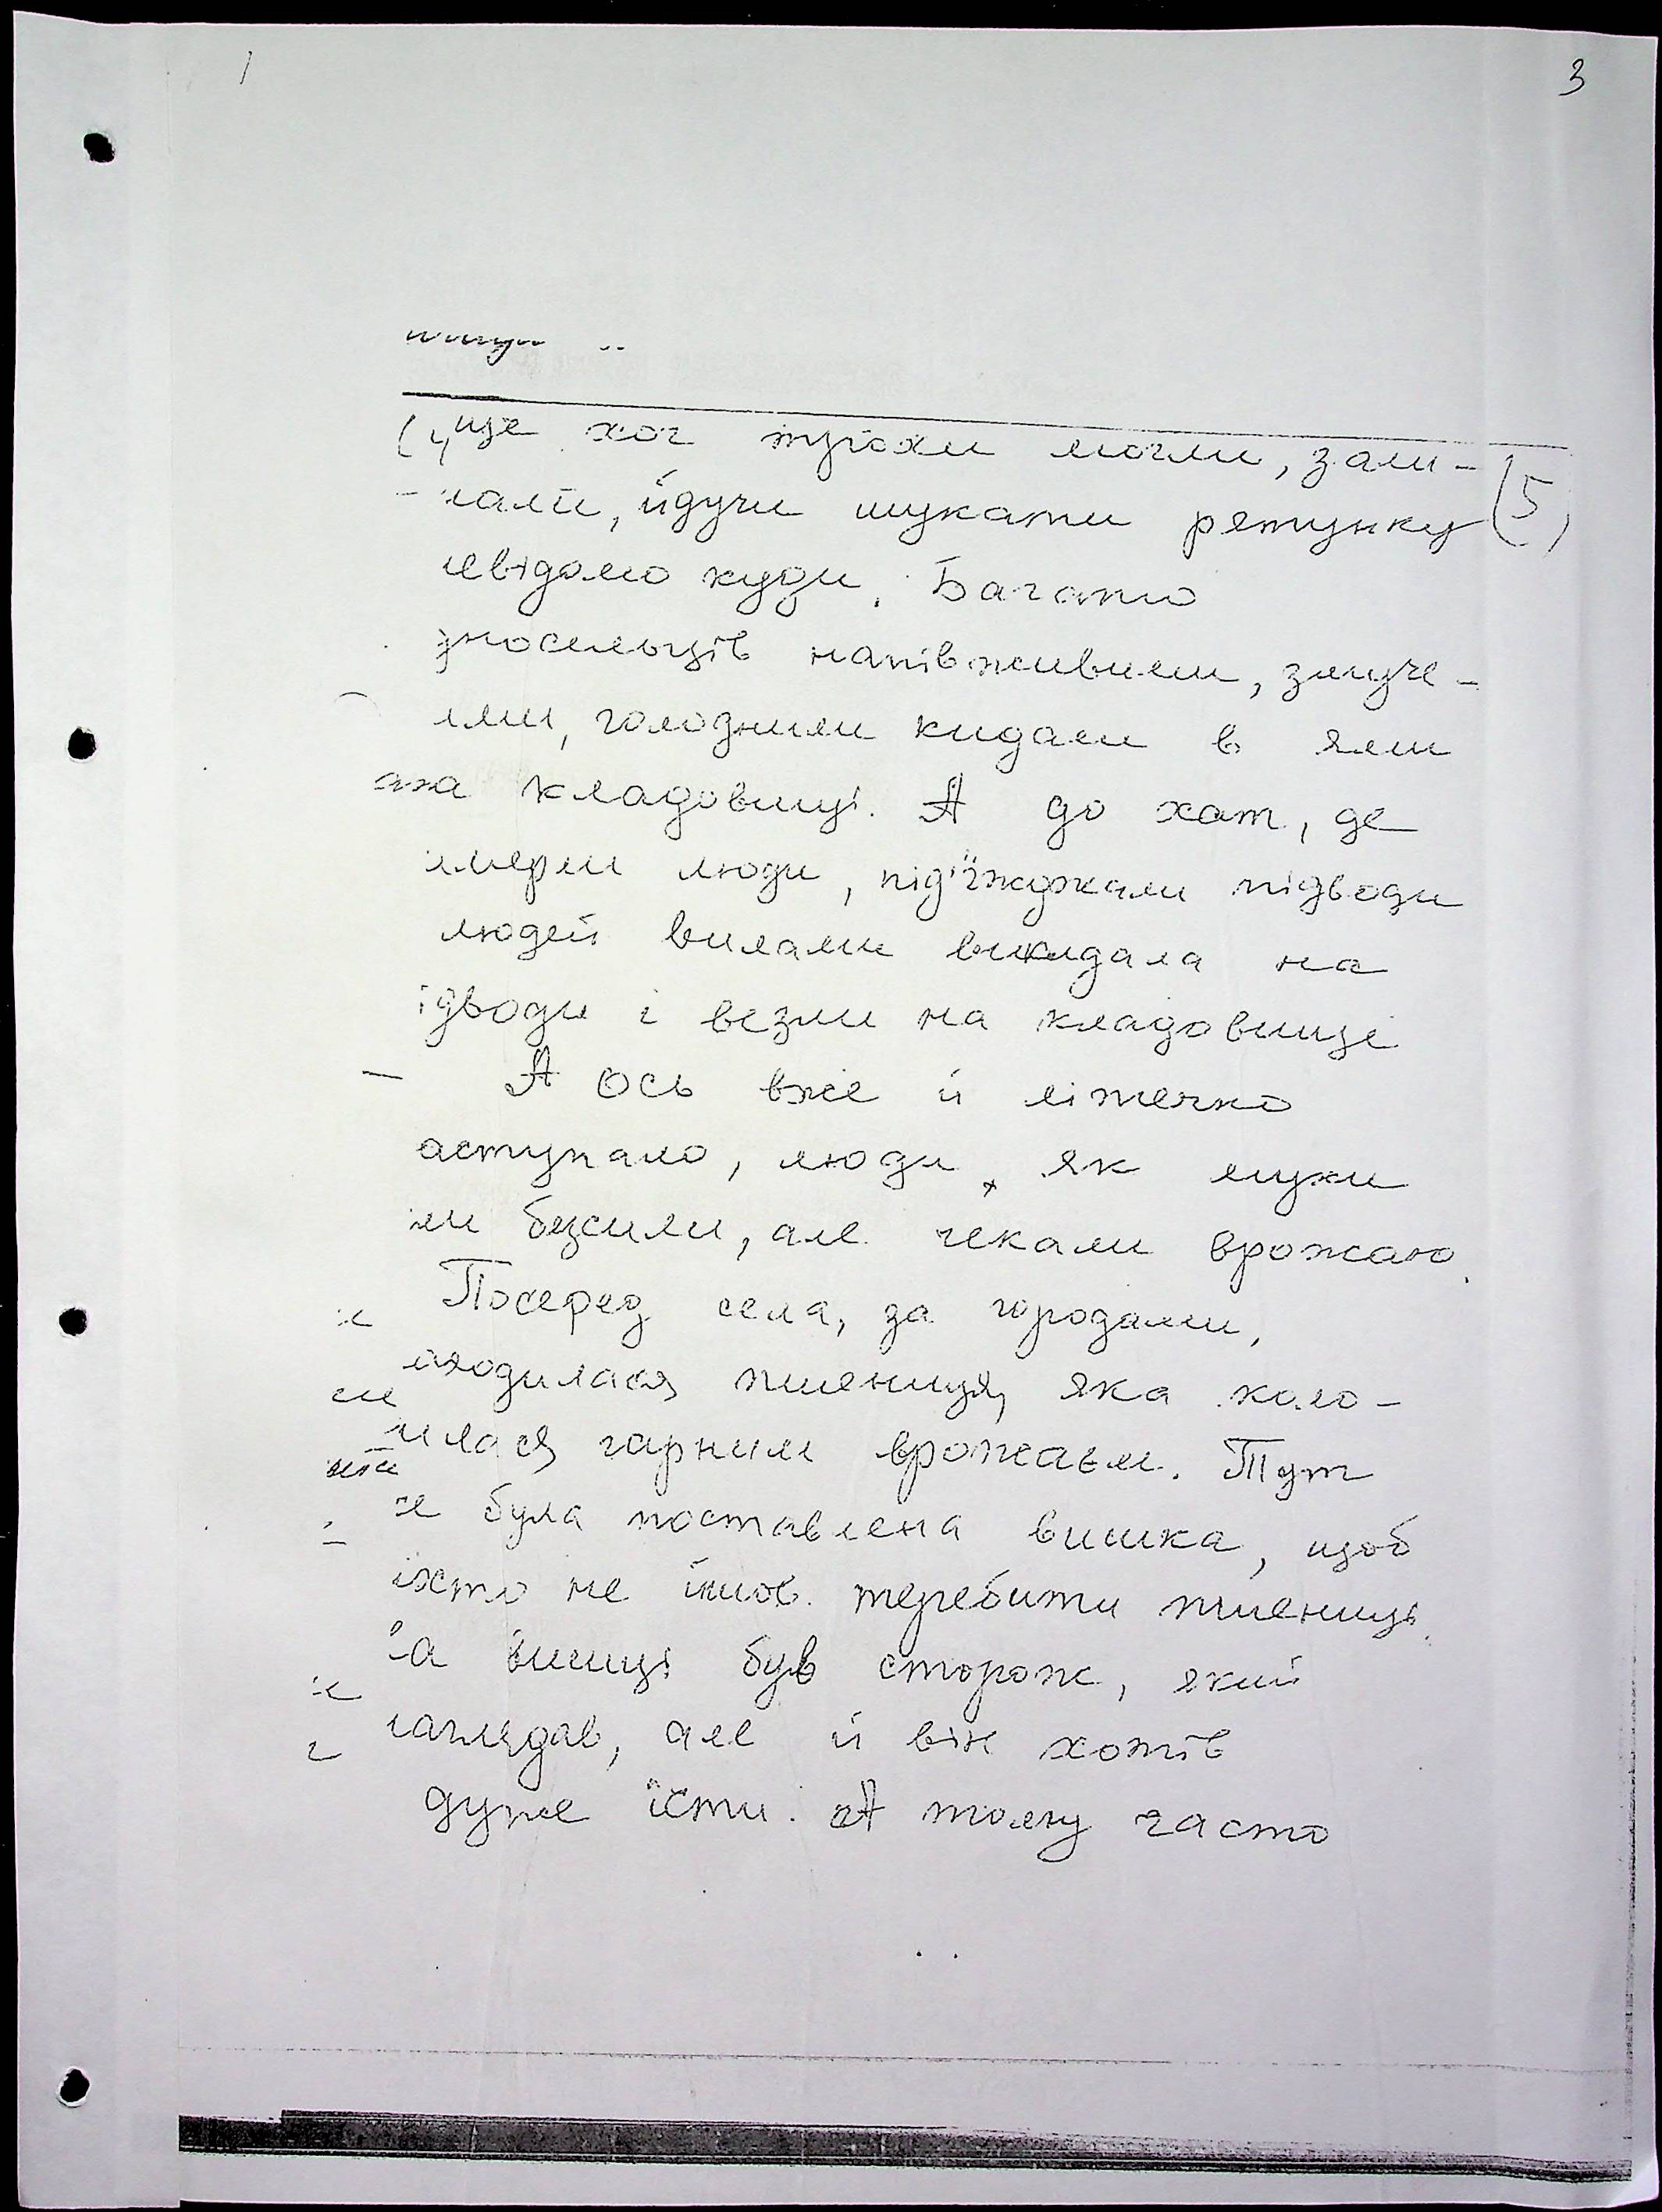 3
ще хоч трохи могли, зали-
шали, йдучи шукати рятунку (5)
невідомо куди. Багато
односельців напівживими, змуче-
ними, голодними кидали в ями
на кладовищі. А до хат, де
вмерли люди, під'їжджали підводи
людей вилами викидала на
ідводи і везли на кладовище
А ось вже й літечко
аступало, люди, як мухи
безсили, але чекали врожаю.
Посеред села, за городами,
аходилася пшениця, яка коло-
илася гарним врожаєм. Тут
е була поставлена вишка, щоб
іхто не йшов теребити пшениці.
а вишці був сторож, який
наглядав, але й він хотів
дуже їсти. А тому часто